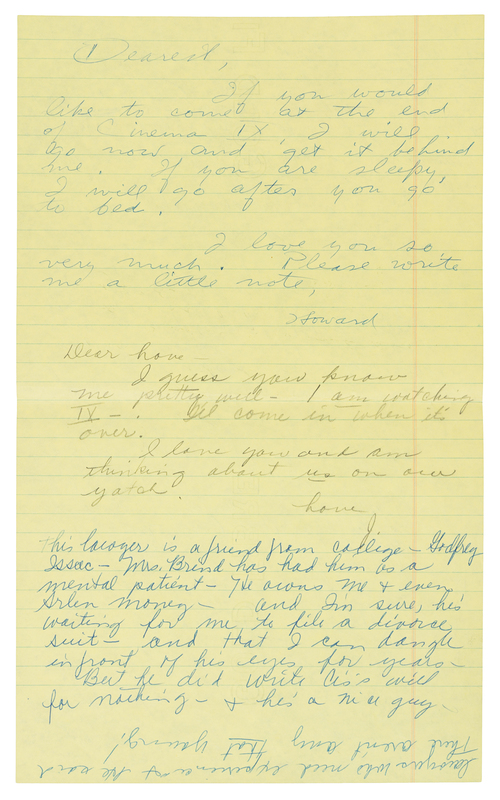 Dearest,
If you would
like to come at the end
of Cinema IX I will
go now and get it behind
me. If you are sleepy,
I will go after you go
to bed.
I love you so
very much. Please write
me a little note,
Howard
Dear love -
I guess you know
me pretty well - I am watching
IX - . I'll come in when it's
over.
I love you and am
thinking about us on our
yatch.
Love,
J
This lawyer is a friend from college - Godfrey
Issac - Mrs. Brisnd has had him as a
mental patient - He owns me & even
Arlen money - and I'm sure, he's
waiting for me to file a divorce
suit - and that I can dangle
in front of his eyes for years -
But he did write Cis's will
for nothing - & he's a nice guy -
lawyers who need experience at the card
That aren't any that young!